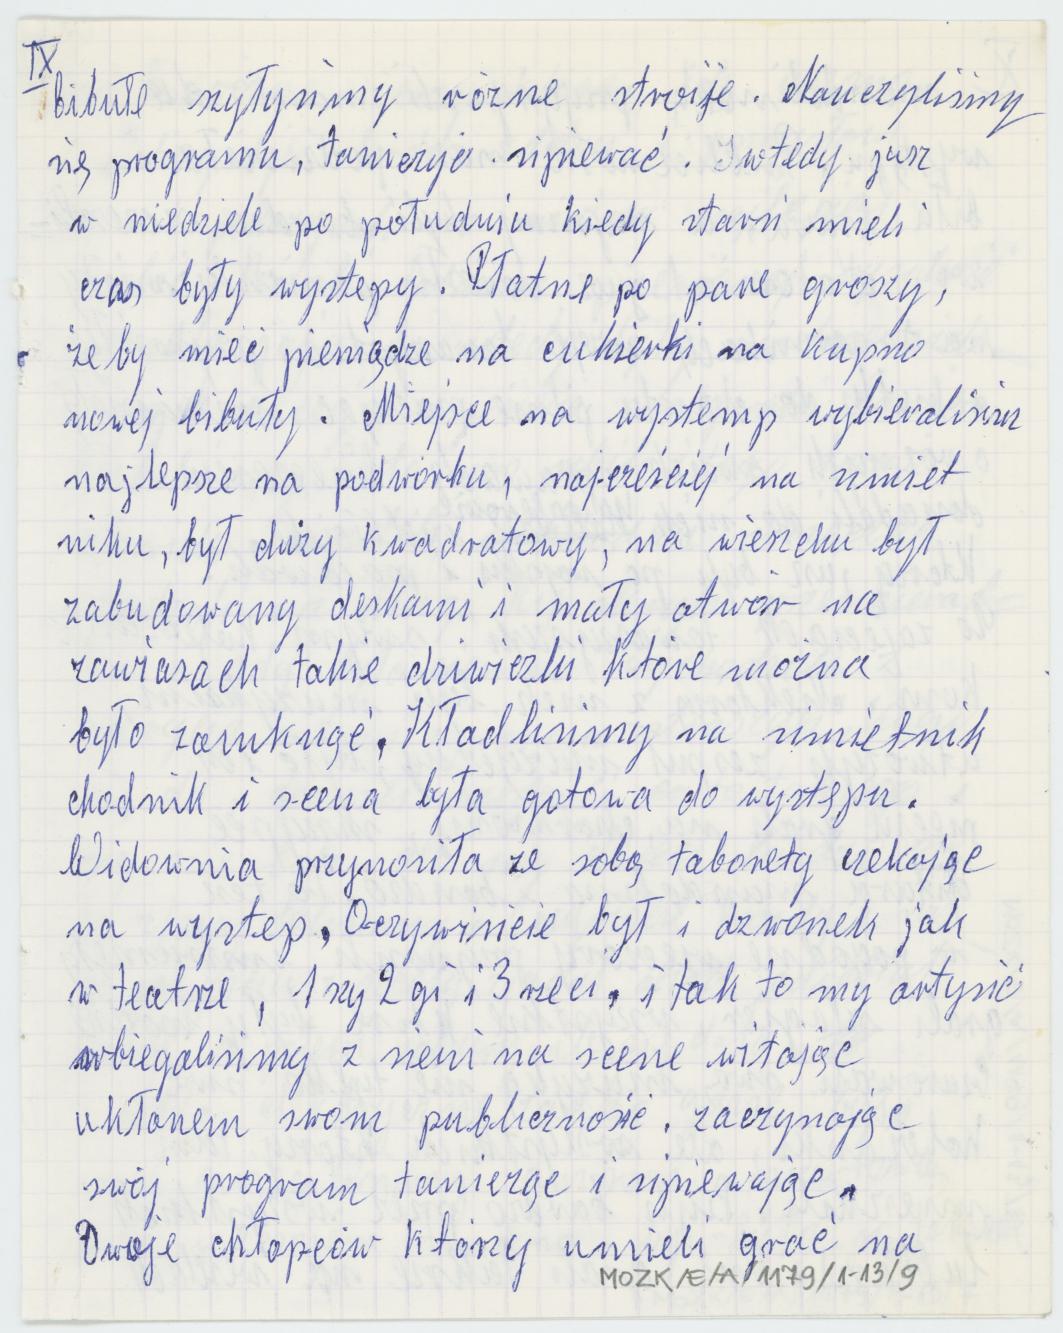 IX
bibułe szyłyśmy różne stroije. Nauczyliśmy
się programu, tańczyć. śpiewać. I wtedy jusz
w niedziele po południu kiedy starsi mieli
czas były wystepy. Płatne po pare groszy,
żeby mieć pieniądze na cukierki na kupno
nowej bibuły. Miejsce na wystemp wybieraliśmy
najlepsze na podwórku, najcześciej na śmiet
niku, był duży kwadratowy, na wieszchu był
zabudowany deskami i mały otwór na
zawiasach takie dźwiczki które można
było zamknąć. Kładliśmy na śmietnik
chodnik i scena była gotowa do wystąpu.
Widownia przynosiła ze sobą taborety czekając
na wystep. Oczywiście był i dzwonek jak
w teatrze, 1szy 2gi i 3rzeci. i tak to my artyść
wbiegaliśmy z sieni na scene witająć
ukłonem swom publiczność. zaczynając
swój program tańcząc i śpiewając.
Dwoje chłopców którzy umieli grać na
MOZK/Æ/A/1179/1-13/9